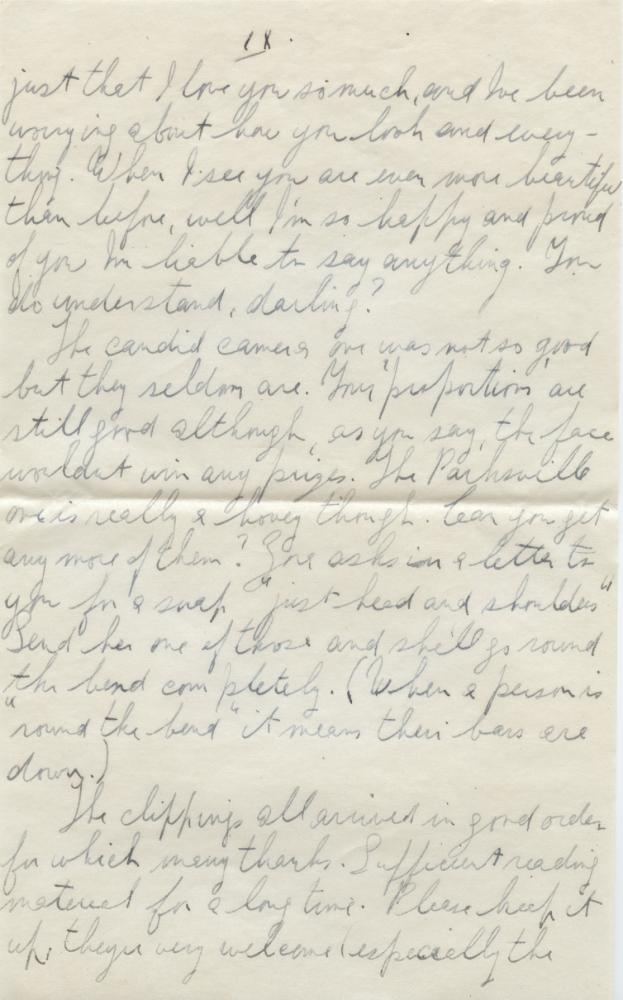 IX.
just that I love you so much, and I've been
worrying about how you look and every-
thing. When I see you are even more beautiful
than before, well I'm so happy and proud
of you I'm liable to say anything. You
do understand, darling?
The candid camera one was not so good
but they seldom are. Your "proportions" are
still good although, as you say, the face
wouldn't win any prizes. The Parksville
one is really a honey though. Can you get
any more of them? Zoe asks in a letter to
you for a snap "just head and shoulders"
Send her one of those and she'll go round
the bend completely. (When a person is
"round the bend" it means their bars are
down.)
The clippings all arrived in good order
for which many thanks. Sufficient reading
material for a long time. Please keep it
up, they're very welcome (especially the